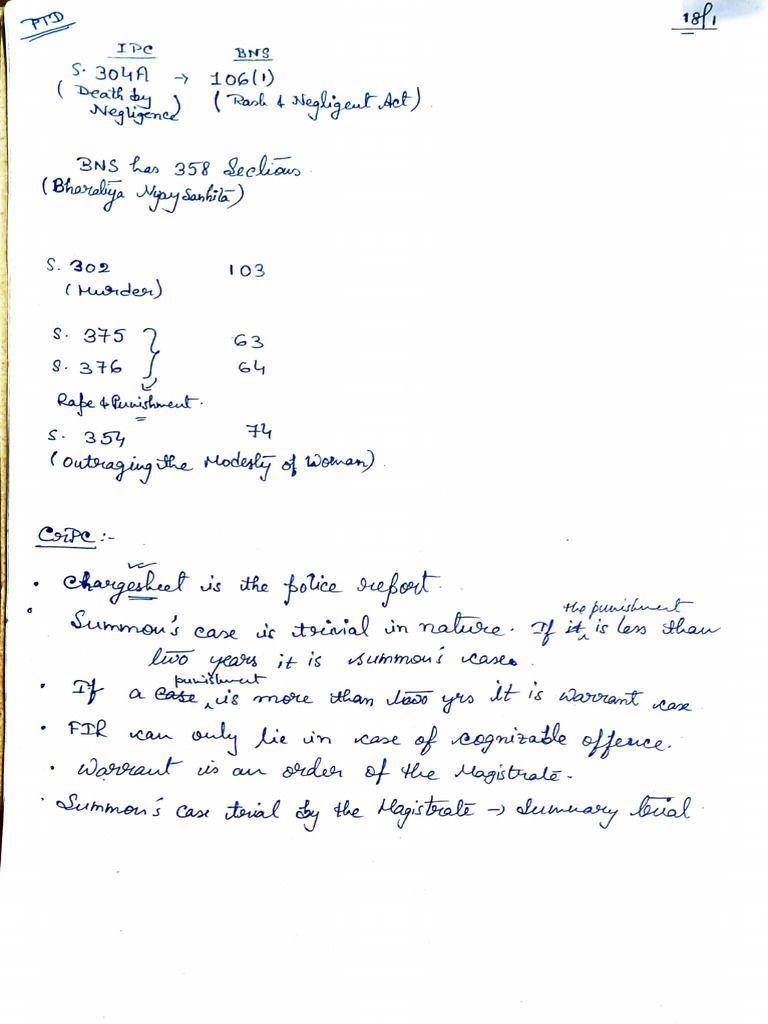 PTD
18/1
IPC BNS
S. 304A → 106(1)
(Death by Negligence) (Rash & Negligent Act)
BNS has 358 Sections
(Bharatiya Nyay Sanhita)
S. 302 103
(Murder)
S. 375 63
S. 376 64
Rape & Punishment.
S. 354 74
(Outraging the Modesty of Woman)
CrPC :-
• Chargesheet is the police report.
• Summon's case is trivial in nature. If it the punishment is less than
two years it is summon's case.
• If a case punishment is more than two yrs it is warrant case
• FIR can only lie in case of cognizable offence.
• Warrant is an order of the Magistrate.
• Summon's case trial by the Magistrate → Summary trial.